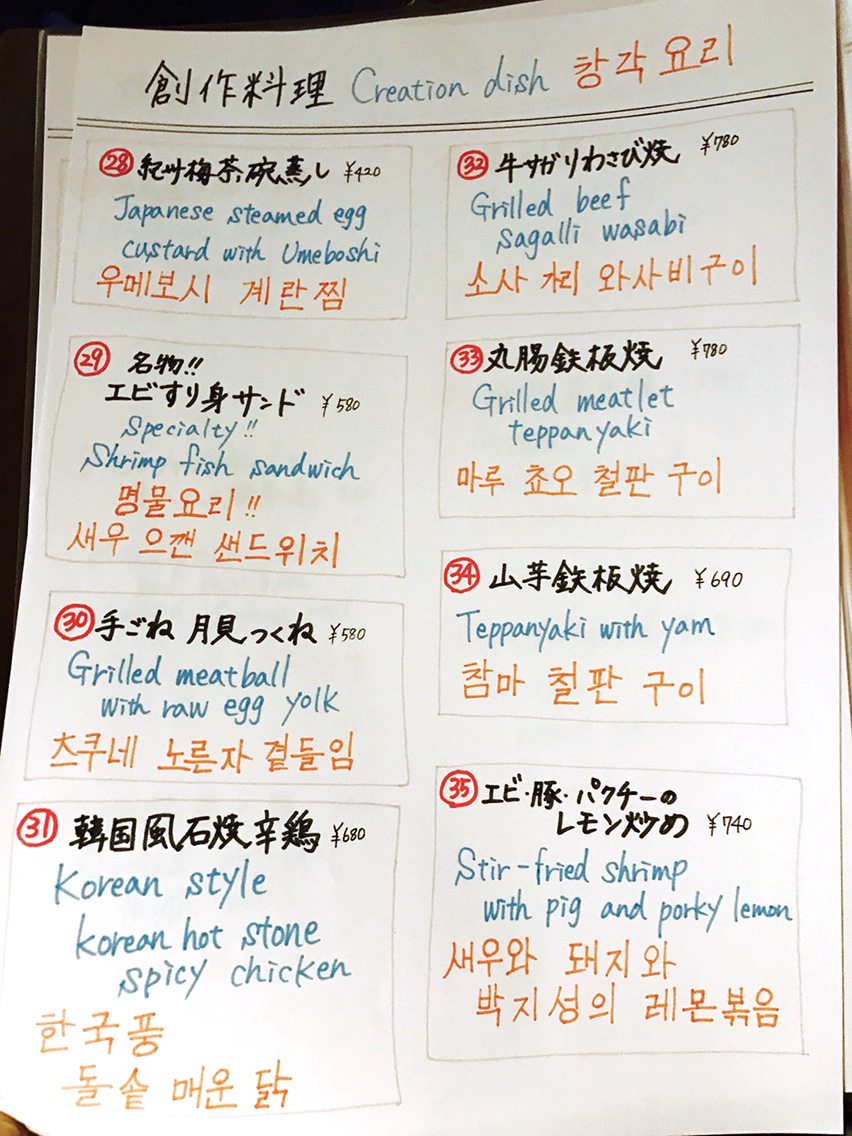 創作料理 Creation dish 창각요리
28 紀州梅茶碗蒸し ¥420
Japanese steamed egg
custard with Umeboshi
우메보시 계란찜
29 名物!!
エビすり身サンド ¥580
Specialty!!
Shrimp fish sandwich
명물요리!!
새우 으깬 샌드위치
30 手ごね 月見つくね ¥580
Grilled meatball
with raw egg yolk
츠쿠네 노른자 곁들임
31 韓国風石焼辛鶏 ¥680
Korean style
korean hot stone
spicy chicken
한국풍
돌솥 매운 닭
32 牛サガリわさび焼 ¥780
Grilled beef
sagalli wasabi
소사 가리 와사비구이
33 丸腸鉄板焼 ¥780
Grilled meatlet
teppanyaki
마루 쵸오 철판 구이
34 山芋鉄板焼 ¥690
Teppanyaki with yam
참마 철판 구이
35 エビ・豚・パクチーの
レモン炒め ¥740
Stir-fried shrimp
with pig and porky lemon
새우와 돼지와
박지성의 레몬볶음